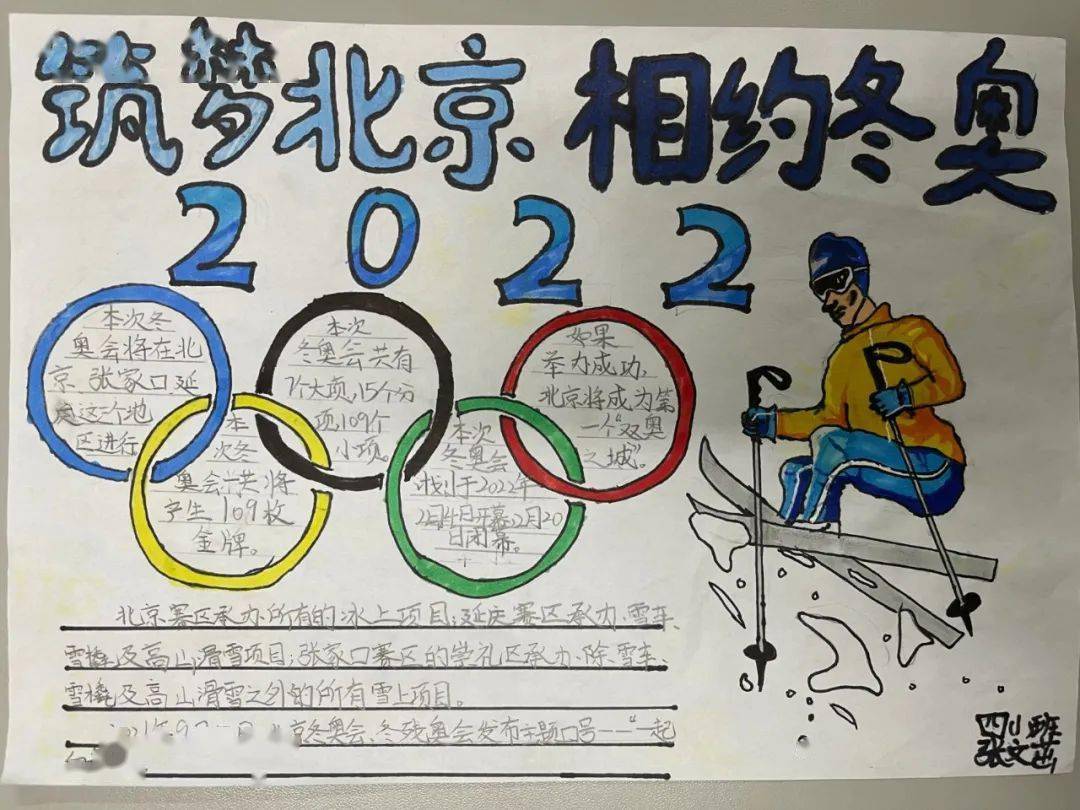 筑梦北京 相约冬奥
2022
本次冬
奥会将在北
京、张家口、延
庆这三个地
区进行
本
次冬
奥会一共将
产生109枚
金牌。
本次
冬奥会共有
7个大项,15个分
项,109个
小项。
本次
冬奥会
计划于2022年
2月4日开幕,2月20
日闭幕。
如果
举办成功,
北京将成为第
一个“双奥
之城”。
北京赛区承办所有的冰上项目;延庆赛区承办雪车、
雪橇及高山滑雪项目;张家口赛区的崇礼区承办除雪车、
雪橇及高山滑雪之外的所有雪上项目。
京冬奥会、冬残奥会发布主题口号——“一起
四班
张文